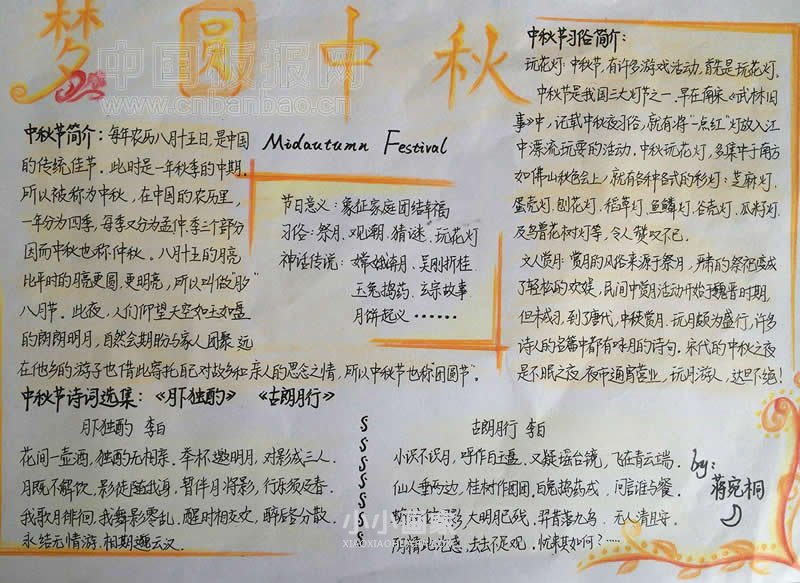 梦圆中秋
中国版报网
www.cnbanbao.cn
Midautumn Festival
中秋节简介：每年农历八月十五日，是中国
的传统佳节。此时是一年秋季的中期，
所以被称为中秋，在中国的农历里，
一年分为四季，每季又分为孟仲季三个部分
因而中秋也称仲秋。八月十五的月亮
比平时的月亮更圆，更明亮，所以叫做"月夕"
八月节。此夜，人们仰望天空如玉如盘
的朗朗明月，自然会期盼与家人团聚，远
在他乡的游子也借此寄托自己对故乡和亲人的思念之情，所以中秋节也称"团圆节"。
节日意义：象征家庭团结幸福
习俗：祭月、观潮、猜谜、玩花灯
神话传说：嫦娥奔月、吴刚折桂、
玉兔捣药、玄宗故事、
月饼起义······
中秋节习俗简介：
玩花灯：中秋节，有许多游戏活动，首先是玩花灯。
中秋节是我国三大灯节之一，早在南宋《武林旧
事》中，记载中秋夜习俗，就有将"一点红"灯放入江
中漂流玩耍的活动。中秋玩花灯，多集中于南方
如佛山秋色会上，就有各种各式的彩灯：芝麻灯、
蛋壳灯、刨花灯、稻草灯、鱼鳞灯、谷壳灯、瓜籽灯
及鸟兽花树灯等，令人赞叹不已。
文人赏月：赏月的风俗来源于祭月，严肃的祭祀变成
了轻松的欢娱，民间中赏月活动开始于魏晋时期，
但未成习，到了唐代，中秋赏月、玩月颇为盛行，许多
诗人的名篇中都有咏月的诗句。宋代的中秋之夜
是不眠之夜，夜市通宵营业，玩月游人，达旦不绝！
中秋节诗词选集：《月下独酌》《古朗月行》
月下独酌 李白
花间一壶酒，独酌无相亲。举杯邀明月，对影成三人。
月既不解饮，影徒随我身，暂伴月将影，行乐须及春。
我歌月徘徊，我舞影零乱。醒时相交欢，醉后各分散。
永结无情游，相期邈云汉。
古朗月行 李白
小时不识月，呼作白玉盘。又疑瑶台镜，飞在青云端。
仙人垂两足，桂树作团团。白兔捣药成，问言谁与餐。
蚀圆影，大明夜已残。羿昔落九乌，天人清且安。
阴精此沦惑，去去不足观，忧来其如何？······
by：
蒋宛桐
小小画家
XIAOXIAOHUAJIA.COM